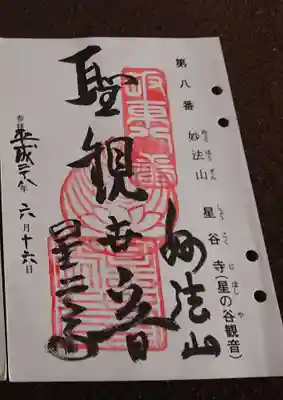 第八番 妙法山 星谷寺(星の谷観音)
みょうほうざん しょうこくじ ほし や
坂東八番
妙法山
聖観世音
星谷寺
参拝 平成二八年 六月十六日